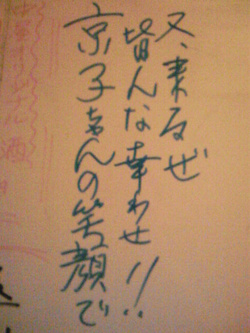 京子ちゃんの笑顔で
皆んな幸わせ!!
又、来るぜ